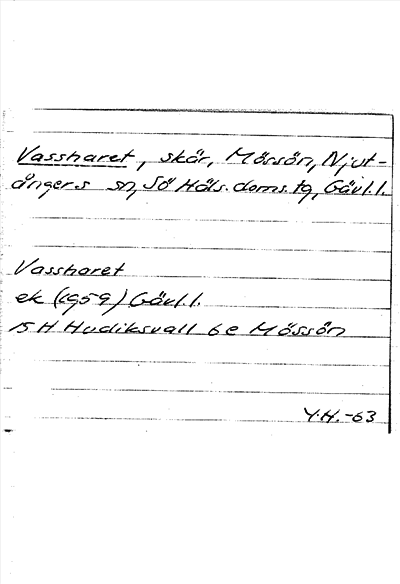 Vassharet, skär, Mössön, Njut-
ångers sn, Sö Häls. doms. tg, Gävl.l.
Vassharet
ek (1959) Gävl.l.
15 H Hudiksvall 6e Mössön
Y.H.-63